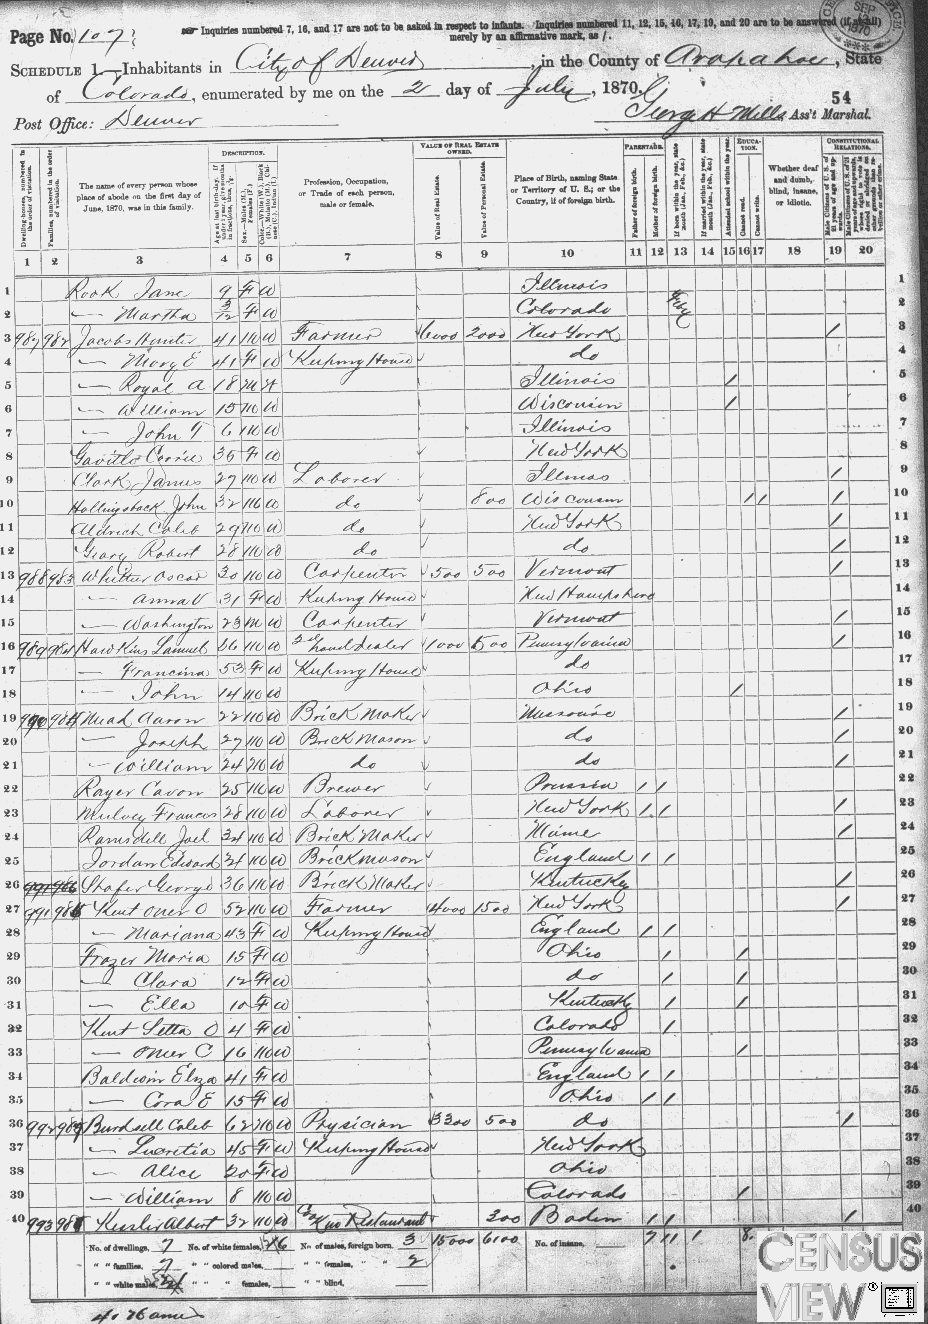 Page No. 107
Inquiries numbered 7, 16, and 17 are not to be asked in respect to infants. Inquiries numbered 11, 12, 15, 16, 17, 19, and 20 are to be answered (if at all)
merely by an affirmative mark, as /.
SCHEDULE 1.—Inhabitants in City of Denver, in the County of Arapahoe, State
of Colorado, enumerated by me on the 2 day of July, 1870.
54
Post Office: Denver George H Mills Ass't Marshal.
DESCRIPTION. VALUE OF REAL ESTATE OWNED. PARENTAGE. EDUCATION. CONSTITUTIONAL RELATIONS.
Dwelling-houses, numbered in the order of visitation.
Families, numbered in the order of visitation.
The name of every person whose place of abode on the first day of June, 1870, was in this family.
Profession, Occupation, or Trade of each person, male or female.
Value of Real Estate.
Value of Personal Estate.
Place of Birth, naming State or Territory of U. S.; or the Country, if of foreign birth.
Father of foreign birth.
Mother of foreign birth.
Attended school within the year.
Cannot read.
Cannot write.
Whether deaf and dumb, blind, insane, or idiotic.
1 2 3 4 5 6 7 8 9 10 11 12 13 14 15 16 17 18 19 20
1 Rook Jane 9 F W Illinois 1
2 — Martha 3/12 F W Colorado 2
3 987 982 Jacobs Hunter 41 M W Farmer 6000 2000 New York / 3
4 — Mary E 41 F W Keeping House do 4
5 — Royal A 18 M Illinois / 5
6 — William 15 M W Wisconsin / 6
7 — John T 6 M W Illinois 7
8 Carrie 35 F W New York 8
9 Clark James 27 M W Laborer Illinois / 9
10 John 32 M W do 800 Wisconsin / / / 10
11 Aldrich Caleb 29 M W do New York / 11
12 Geary Robert 28 M W do do / 12
13 988 983 Whittier Oscar 30 M W Carpenter 500 500 Vermont / 13
14 — Anna V 31 F W Keeping House New Hampshire 14
15 — Washington 23 M W Carpenter Vermont / 15
16 989 984 Hawkins Samuel 56 M W 2nd hand dealer 1000 500 Pennsylvania / 16
17 — Francina 53 F W Keeping House do 17
18 — John 14 M W Ohio / 18
19 990 985 Mead Aaron 22 M W Brick Maker Missouri / 19
20 — Joseph 27 M W Brick Mason do / 20
21 — William 24 M W do do / 21
22 Rayer Cavon 25 M W Brewer Prussia / / 22
23 Mulvey Francis 28 M W Laborer New York / / / 23
24 Ramsdell Joel 34 M W Brick Maker Maine / 24
25 Jordan Edward 21 M W Brick Mason England / / 25
26 Shafer George 36 M W Brick Maker Kentucky / 26
27 991 986 Kent Omer O 52 M W Farmer 4000 1500 New York / 27
28 — Mariana 43 F W Keeping House England / / 28
29 Frazer Maria 15 F W Ohio / / 29
30 — Clara 12 F W do / / 30
31 — Ella 10 F W Kentucky / / 31
32 Kent Setta O 4 F W Colorado / 32
33 — Omer C 16 M W Pennsylvania / 33
34 Baldwin Eliza 41 F W England / / 34
35 — Cora E 15 F W Ohio / / 35
36 992 987 Burdsell Caleb 62 M W Physician 3300 500 do / 36
37 — Lucretia 45 F W Keeping House New York 37
38 — Alice 20 F W Ohio 38
39 — William 8 M W Colorado / 39
40 993 988 Kessler Albert 32 M W Restaurant 300 Baden / / / 40
No. of dwellings, 7 No. of white females, 16 No. of males, foreign born, 3 15000 6100 No. of insane, 7 11 1 8
" " families, 7 " " colored males, " " females, " " 2
" " white males, 24 " " " females, " " blind,
CENSUS
VIEW